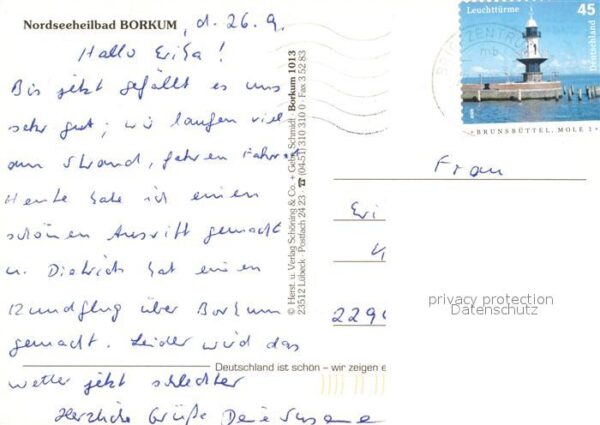 Nordseeheilbad BORKUM, d. 26.9.
Hallo Erika!
Bis jetzt gefällt es uns
sehr gut; wir laufen viel
am Strand, fahren Fahrrad
Heute habe ich einen
schönen Ausritt gemacht
u. Dietrich hat einen
Rundflug über Borkum
gemacht. Leider wird das
Wetter jetzt schlechter
Herzliche Grüße Deine Susanne
© Herst. u. Verlag Schöning & Co. + Gebr. Schmidt · Borkum 1013
23512 Lübeck · Postfach 24 23 · ☎ (04 51) 310 310 0 · Fax 3 52 83
Deutschland ist schön – wir zeigen e
Leuchttürme 45
Deutschland
BRUNSBÜTTEL, MOLE 1
BRIEFZENTRUM
mb
Frau
Eri
K
2299
privacy protection
Datenschutz